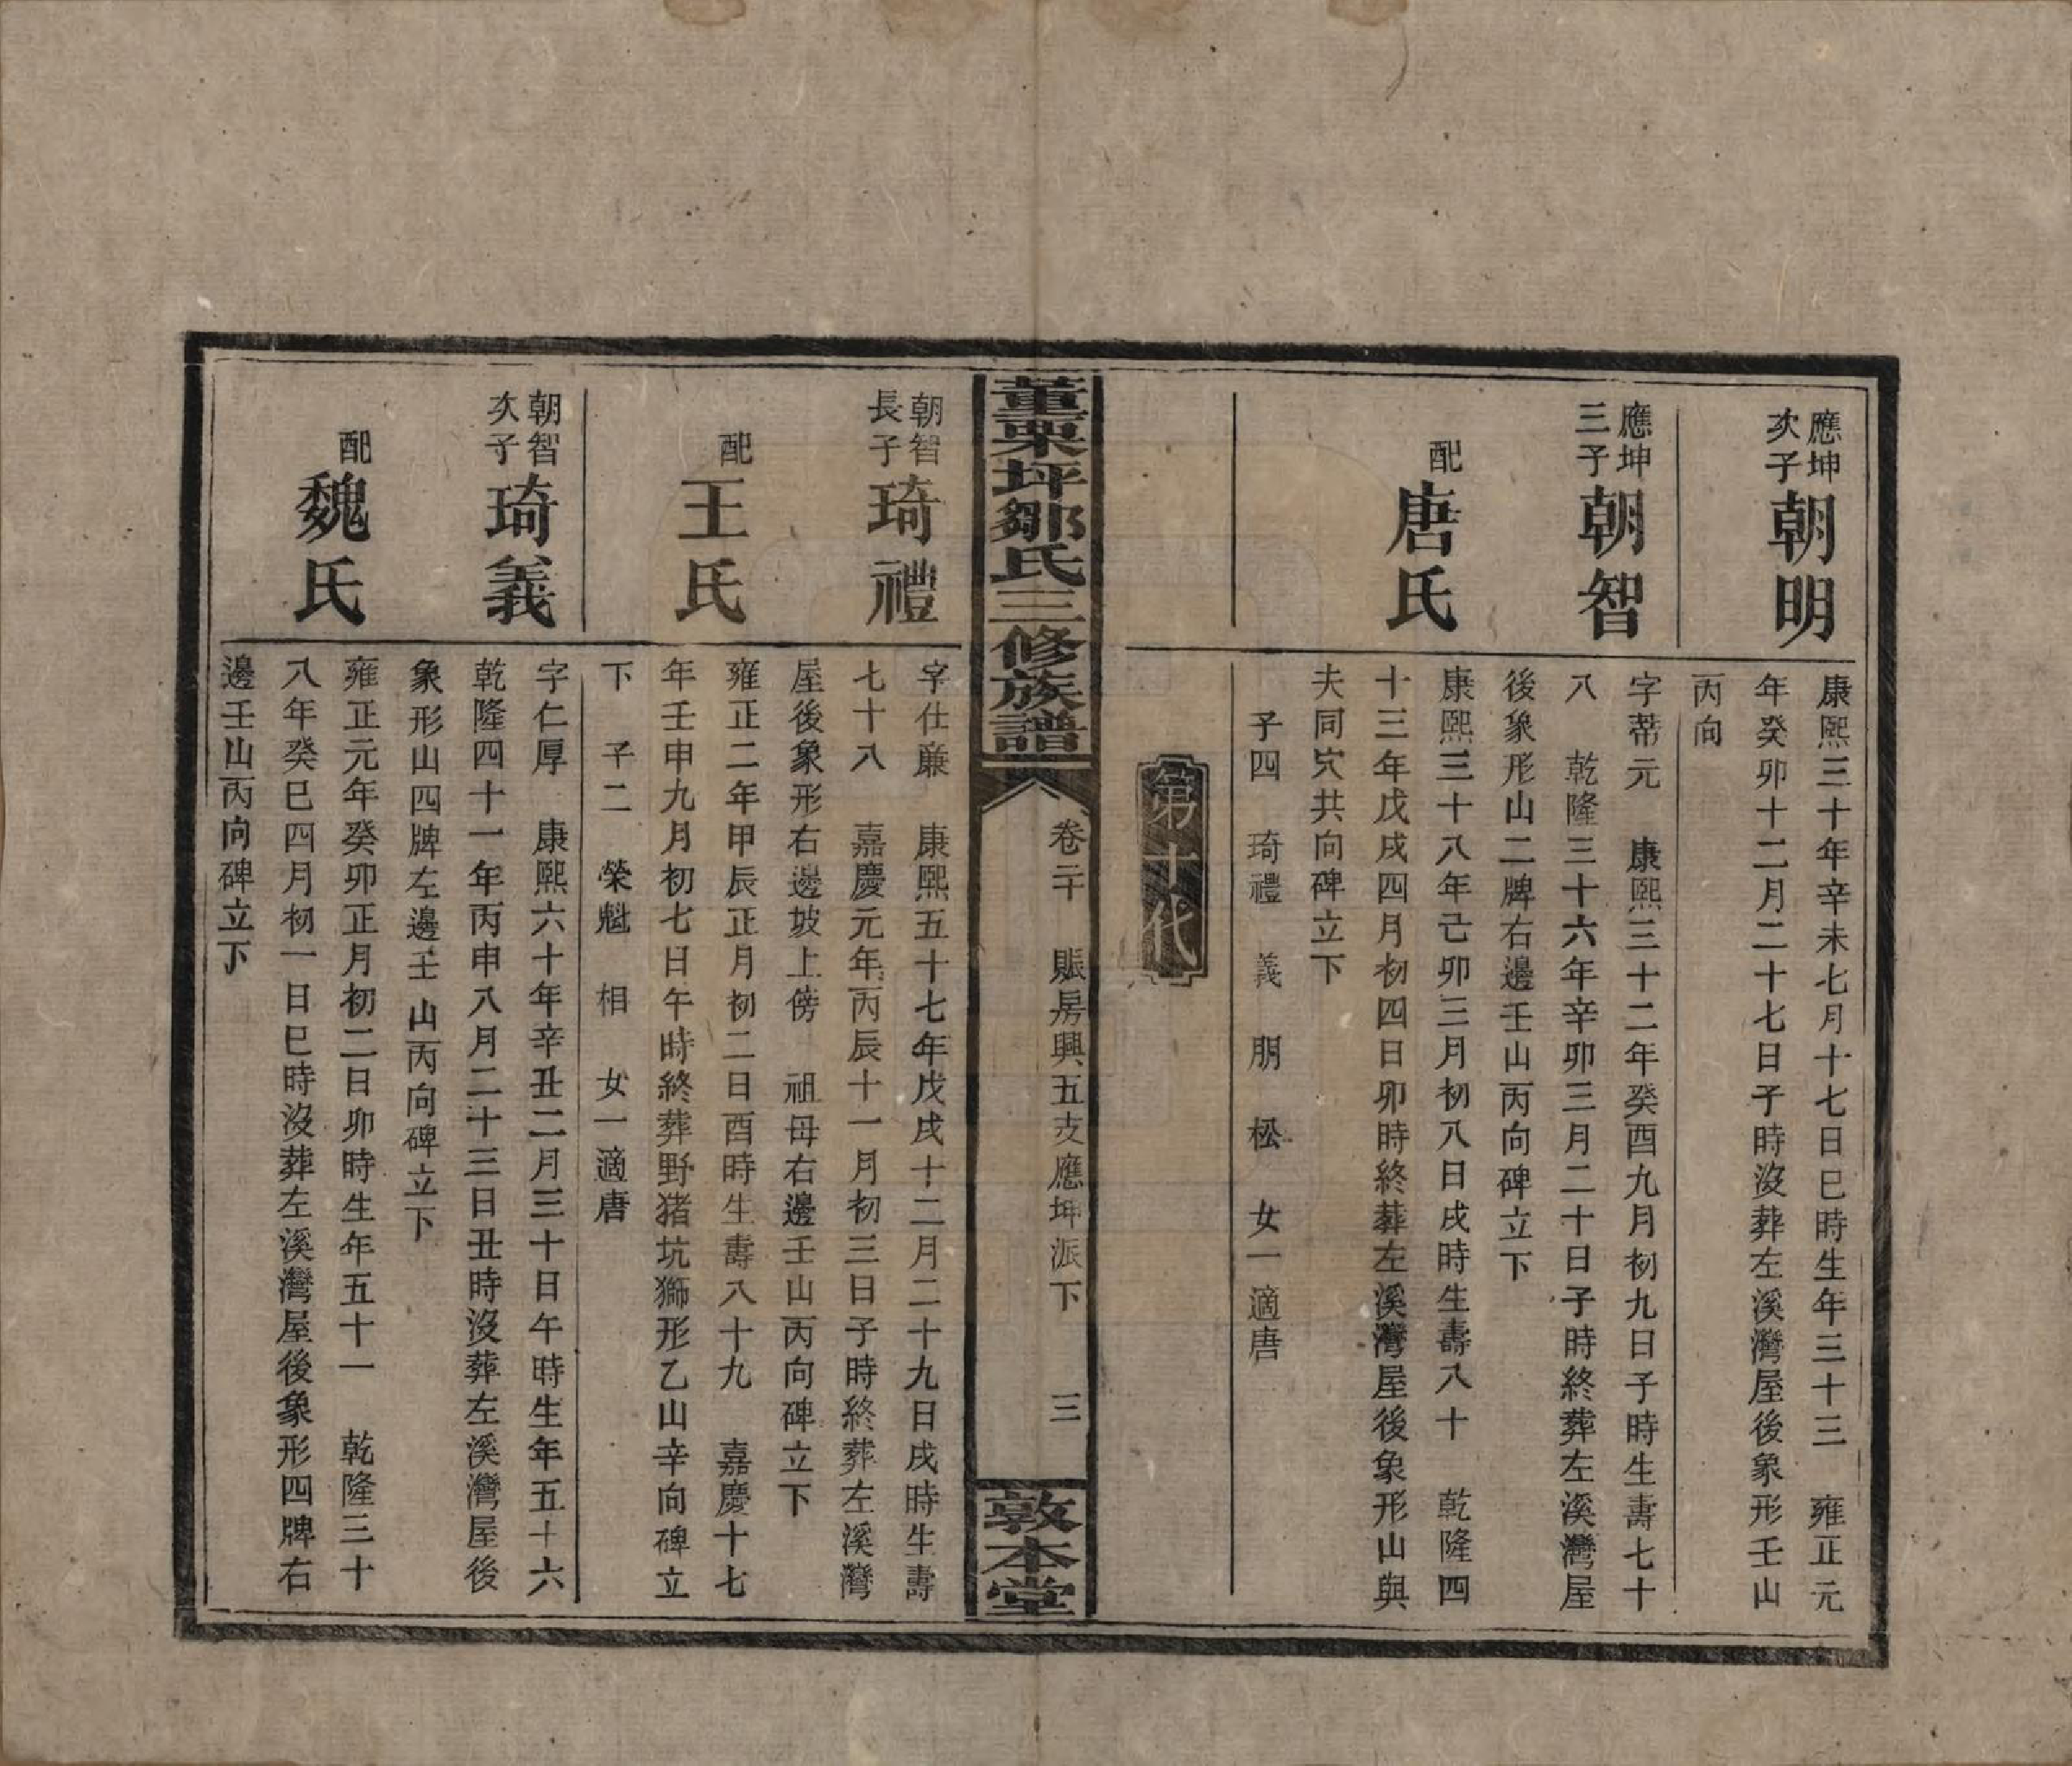 應坤
次子
朝明
康熙三十年辛未七月十七日巳時生年三十三　雍正元
年癸卯十二月二十七日子時沒葬左溪灣屋後象形壬山
丙向
應坤
三子
朝智
字蒂元　康熙三十二年癸酉九月初九日子時生壽七十
八　乾隆三十六年辛卯三月二十日子時終葬左溪灣屋
後象形山二牌右邊壬山丙向碑立下
配
唐氏
康熙三十八年己卯三月初八日戌時生壽八十　乾隆四
十三年戊戌四月初四日卯時終葬左溪灣屋後象形山與
夫同穴共向碑立下
子四　琦禮　義　朋　松　女一適唐
第十代
董栗坪鄒氏三修族譜
卷二十　賬房興五支應坤派下　三
敦本堂
朝智
長子
琦禮
字仕廉　康熙五十七年戊戌十二月二十九日戌時生壽
七十八　嘉慶元年丙辰十一月初三日子時終葬左溪灣
屋後象形右邊坡上傍　祖母右邊壬山丙向碑立下
配
王氏
雍正二年甲辰正月初二日酉時生壽八十九　嘉慶十七
年壬申九月初七日午時終葬野猪坑獅形乙山辛向碑立
下　子二　榮魁　相　女一適唐
朝智
次子
琦義
字仁厚　康熙六十年辛丑二月三十日午時生年五十六
乾隆四十一年丙申八月二十三日丑時沒葬左溪灣屋後
象形山四牌左邊壬山丙向碑立下
配
魏氏
雍正元年癸卯正月初二日卯時生年五十一　乾隆三十
八年癸巳四月初一日巳時沒葬左溪灣屋後象形四牌右
邊壬山丙向碑立下